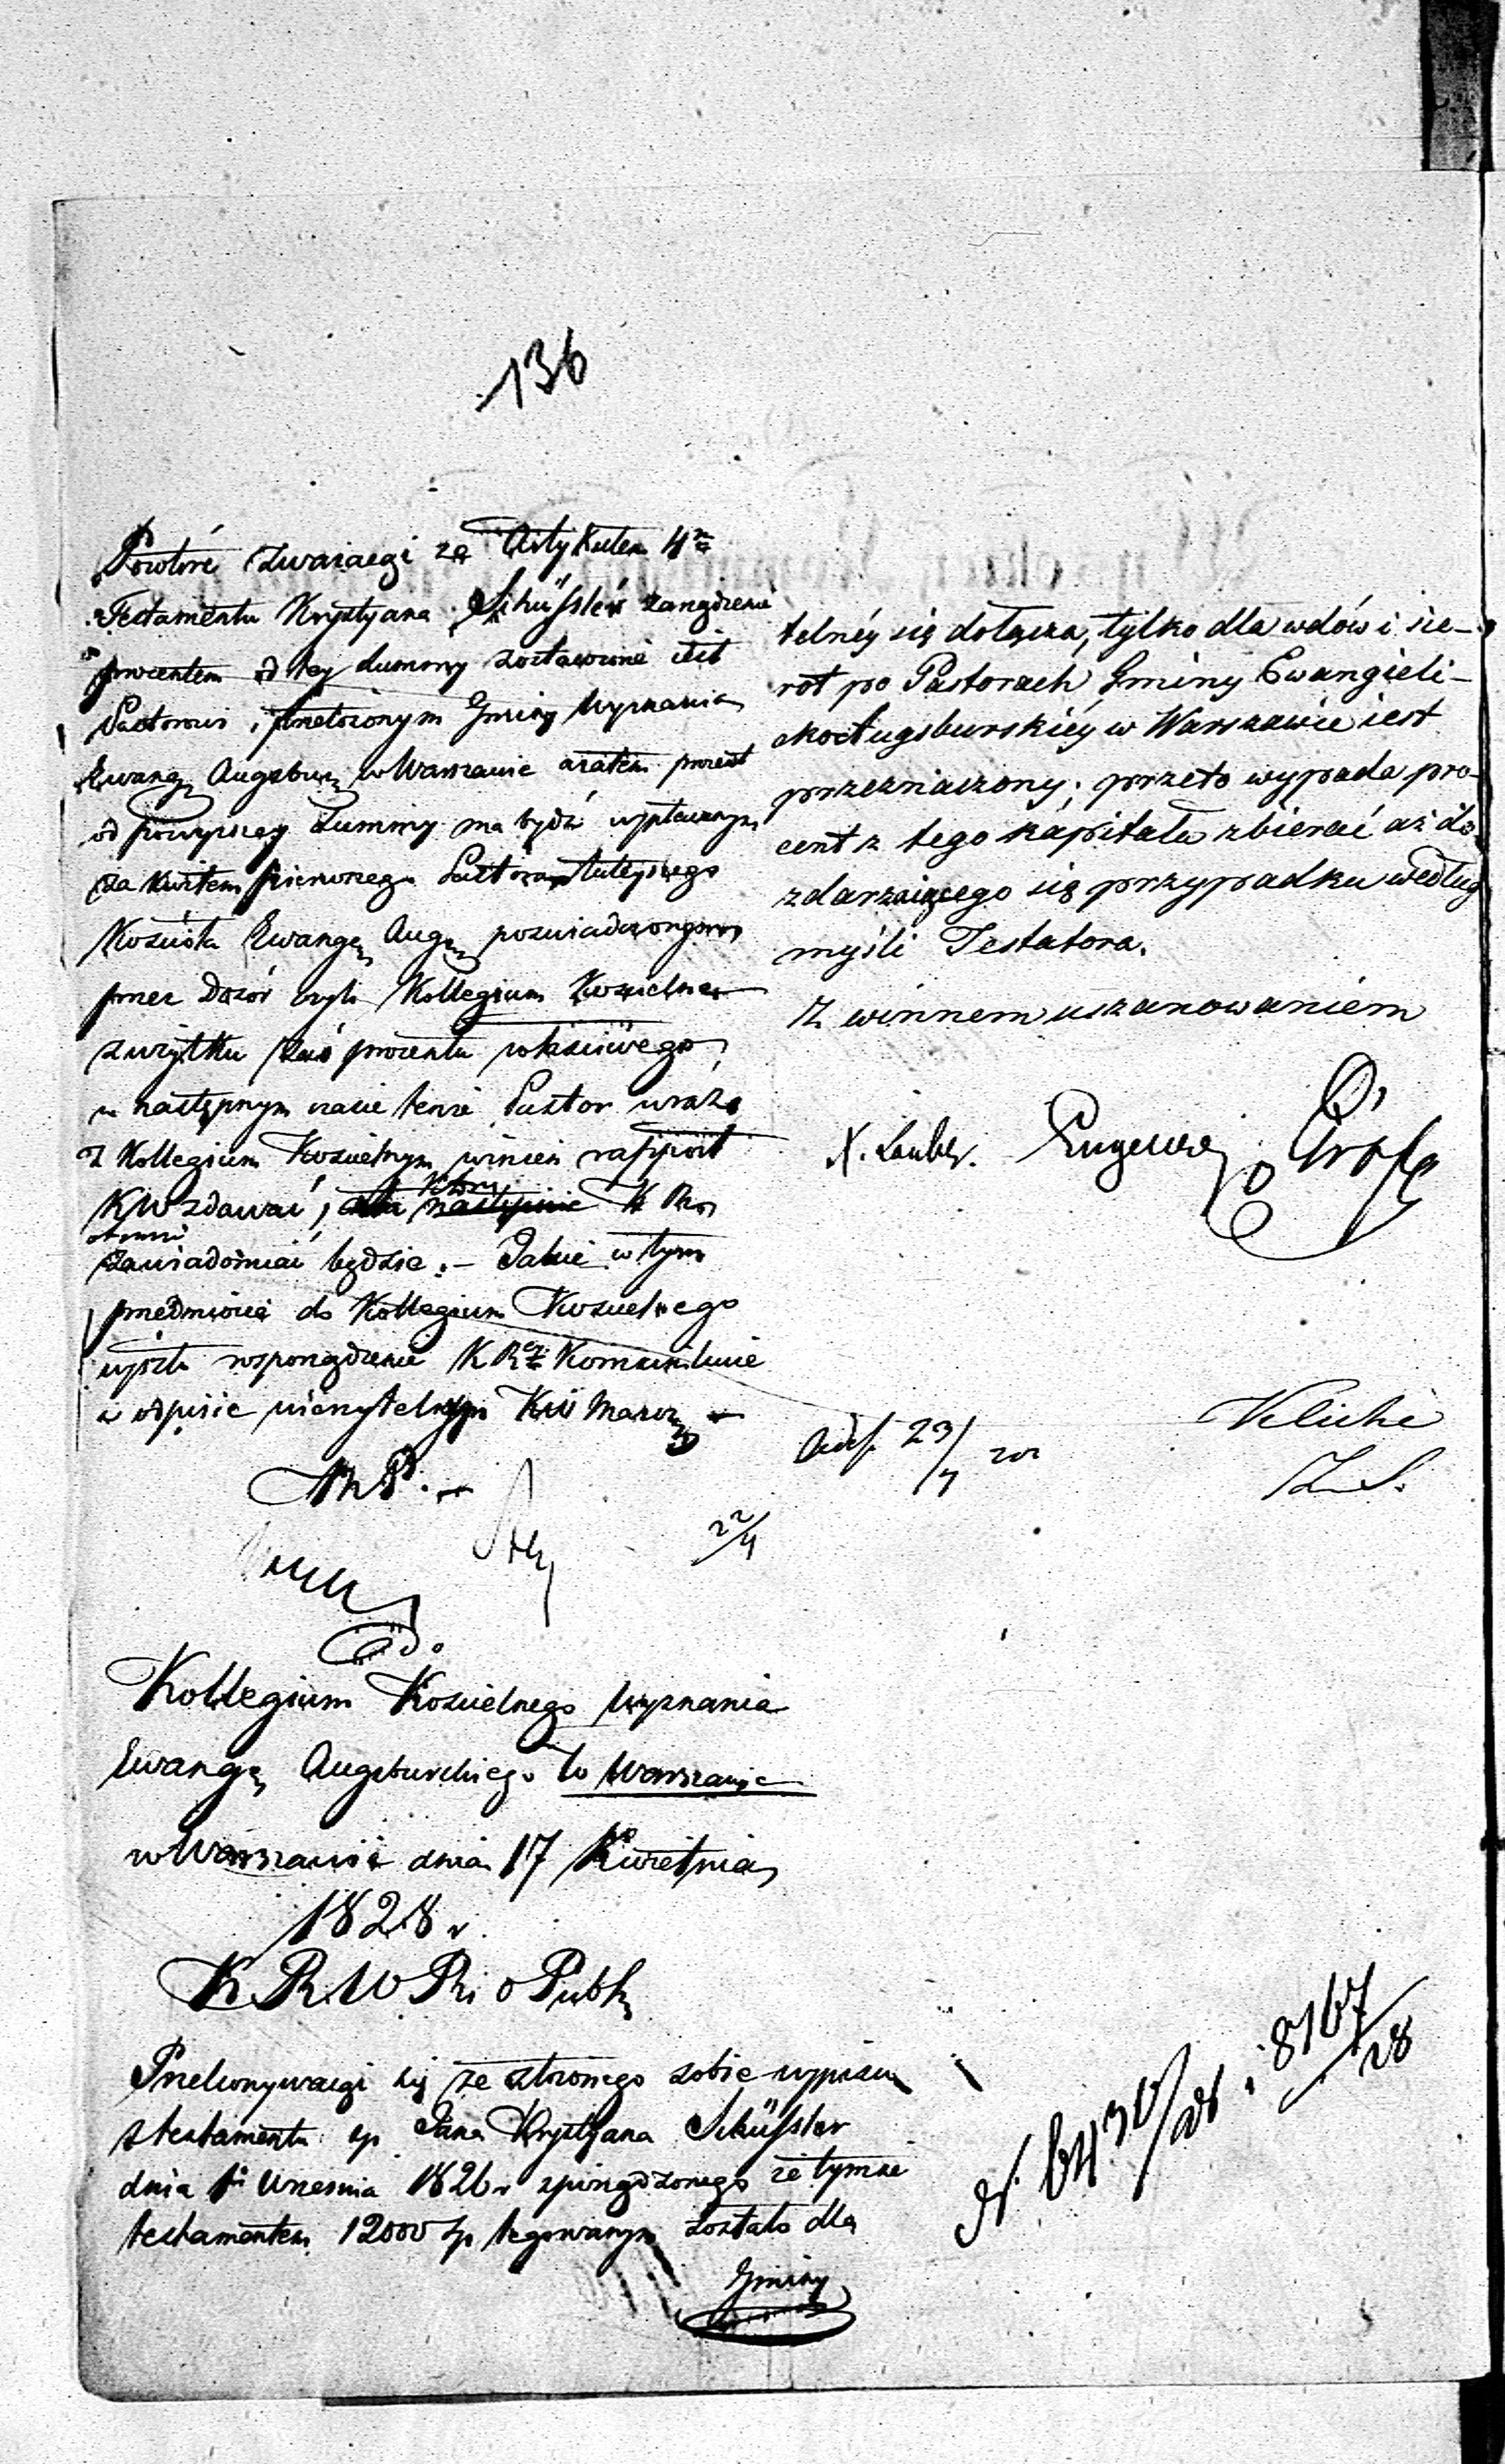 136
Powtóre zważaęgi że Artykułem 4m
Testamentu Krystyana Schüssler
procentem od tey Summy zostawione iest
Pastorowi i przełożonym Gminy Wyznania
Ewang. Augsbur. w Warszawie procent
od powyższey Summy ma bydź wypłacanym
za kwitem pierwszego Pastora tuteyszego
Kościoła Ewang. Aug. poświadczonym
przez Dozór czyli Kollegium Kościelne
z użytku zaś procentu właściwego
w następnym czasie tenże Pastor wraz
z Kollegium Kościelnym winien rapport
KW zdawać, która następnie K R
zawiadomiać będzie. – Jakie w tym
przedmiocie do Kollegium Kościelnego
wyszło rozporządzenie K Rz Kommunikuie
w odpisie wierzytelnym KW Mazow.
22/4
Kollegium Kościelnego Wyznania
Ewang. Augsburskiego w Warszawie
w Warszawie dnia 17 Kwietnia
1828 r.
K. R. W. R. i O Publ.
Przekonywaęgi się ze złożonego sobie wypisu
z testamentu śp Pana Krystyana Schüssler
dnia 1 Września 1826 r sporządzonego że tymże
testamentem 12000 Zp legowanym zostało dla
Gminy
telnéy się dołącza, tylko dla wdów i sie-
rot po Pastorach Gminy Ewangieli-
cko Augsburskiéy w Warszawie iest
przeznaczony; przeto wypada pro-
cent z tego kapitału zbierać aż do
zdarzaiącego się przypadku według
myśli Testatora.
Z winnem uszanowaniem
X. Lauber.
23/4
Kliche
Z. S.
8167/28